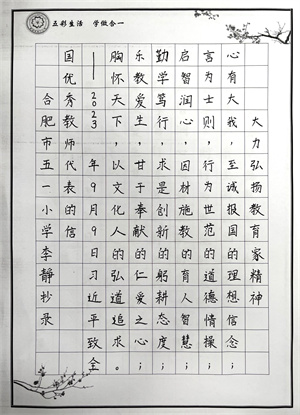 五彩生活 学做合一
大力弘扬教育家精神
心有大我,至诚报国的理想信念;
言为士则,行为世范的道德情操;
启智润心,因材施教的育人智慧;
勤学笃行,求是创新的躬耕态度;
乐教爱生,甘于奉献的仁爱之心;
胸怀天下,以文化人的弘道追求。
——2023年9月9日习近平致全
国优秀教师代表的信
合肥市五一小学李静抄录